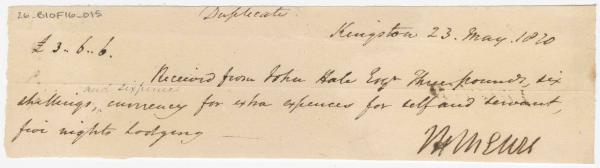 26-B10F16-015
Duplicate.
Kingston 23. May. 1820
£ 3 . 6 . 6.
Received from John Hale Esqr Three pounds, six
and sixpence
shillings, currency for extra expences for self and servant,
five nights Lodging